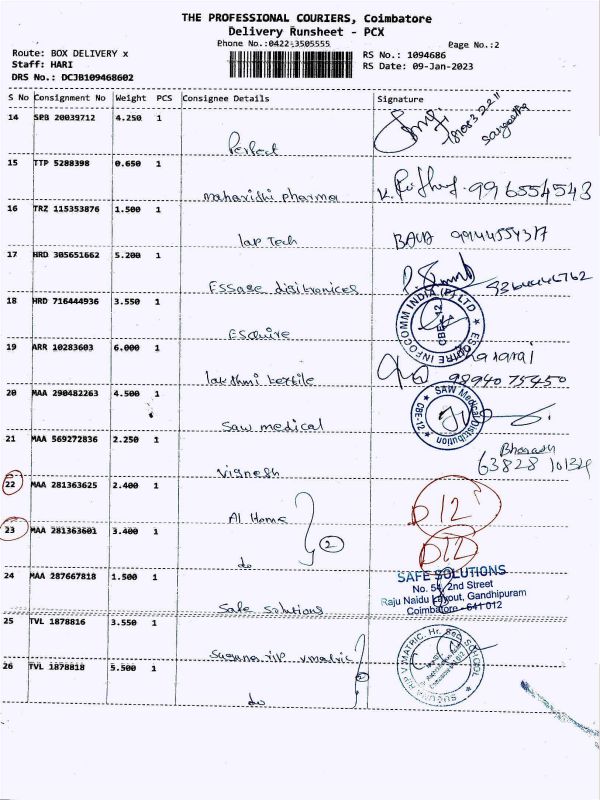 THE PROFESSIONAL COURIERS, Coimbatore
Delivery Runsheet - PCX
Phone No.:0422-3505555
Page No.:2
Route: BOX DELIVERY x
Staff: HARI
DRS No.: DCJB109468602
RS No.: 1094686
RS Date: 09-Jan-2023
S No Consignment No Weight PCS Consignee Details Signature
14 SPB 20039712 4.250 1
Perfect
15 TTP 5288398 0.650 1
maharishi pharma 9965554543
16 TRZ 115353876 1.500 1
lap Tech
17 HRD 305651662 5.200 1
Essage digitronices
18 HRD 716444936 3.550 1
Esquire
ESQUIRE INFOCOMM INDIA (P) LTD
CBE-12
19 ARR 10283603 6.000 1
lakshmi textile 9894075450
20 MAA 290482263 4.500 1
Saw medical
SAW Medical Distribution
CBE-12
21 MAA 569272836 2.250 1
Vignesh 63828 10134
22 MAA 281363625 2.400 1
Al Home D12
23 MAA 281363601 3.400 1
2
do D12
24 MAA 287667818 1.500 1
Safe solutions
SAFE SOLUTIONS
No. 54, 2nd Street
Raju Naidu Layout, Gandhipuram
Coimbatore - 641 012
25 TVL 1878816 3.550 1
Suguna rip v matric
26 TVL 1878818 5.500 1
2
do
SUGUNA RIP V.MATRIC. Hr. Sec. SCHOOL